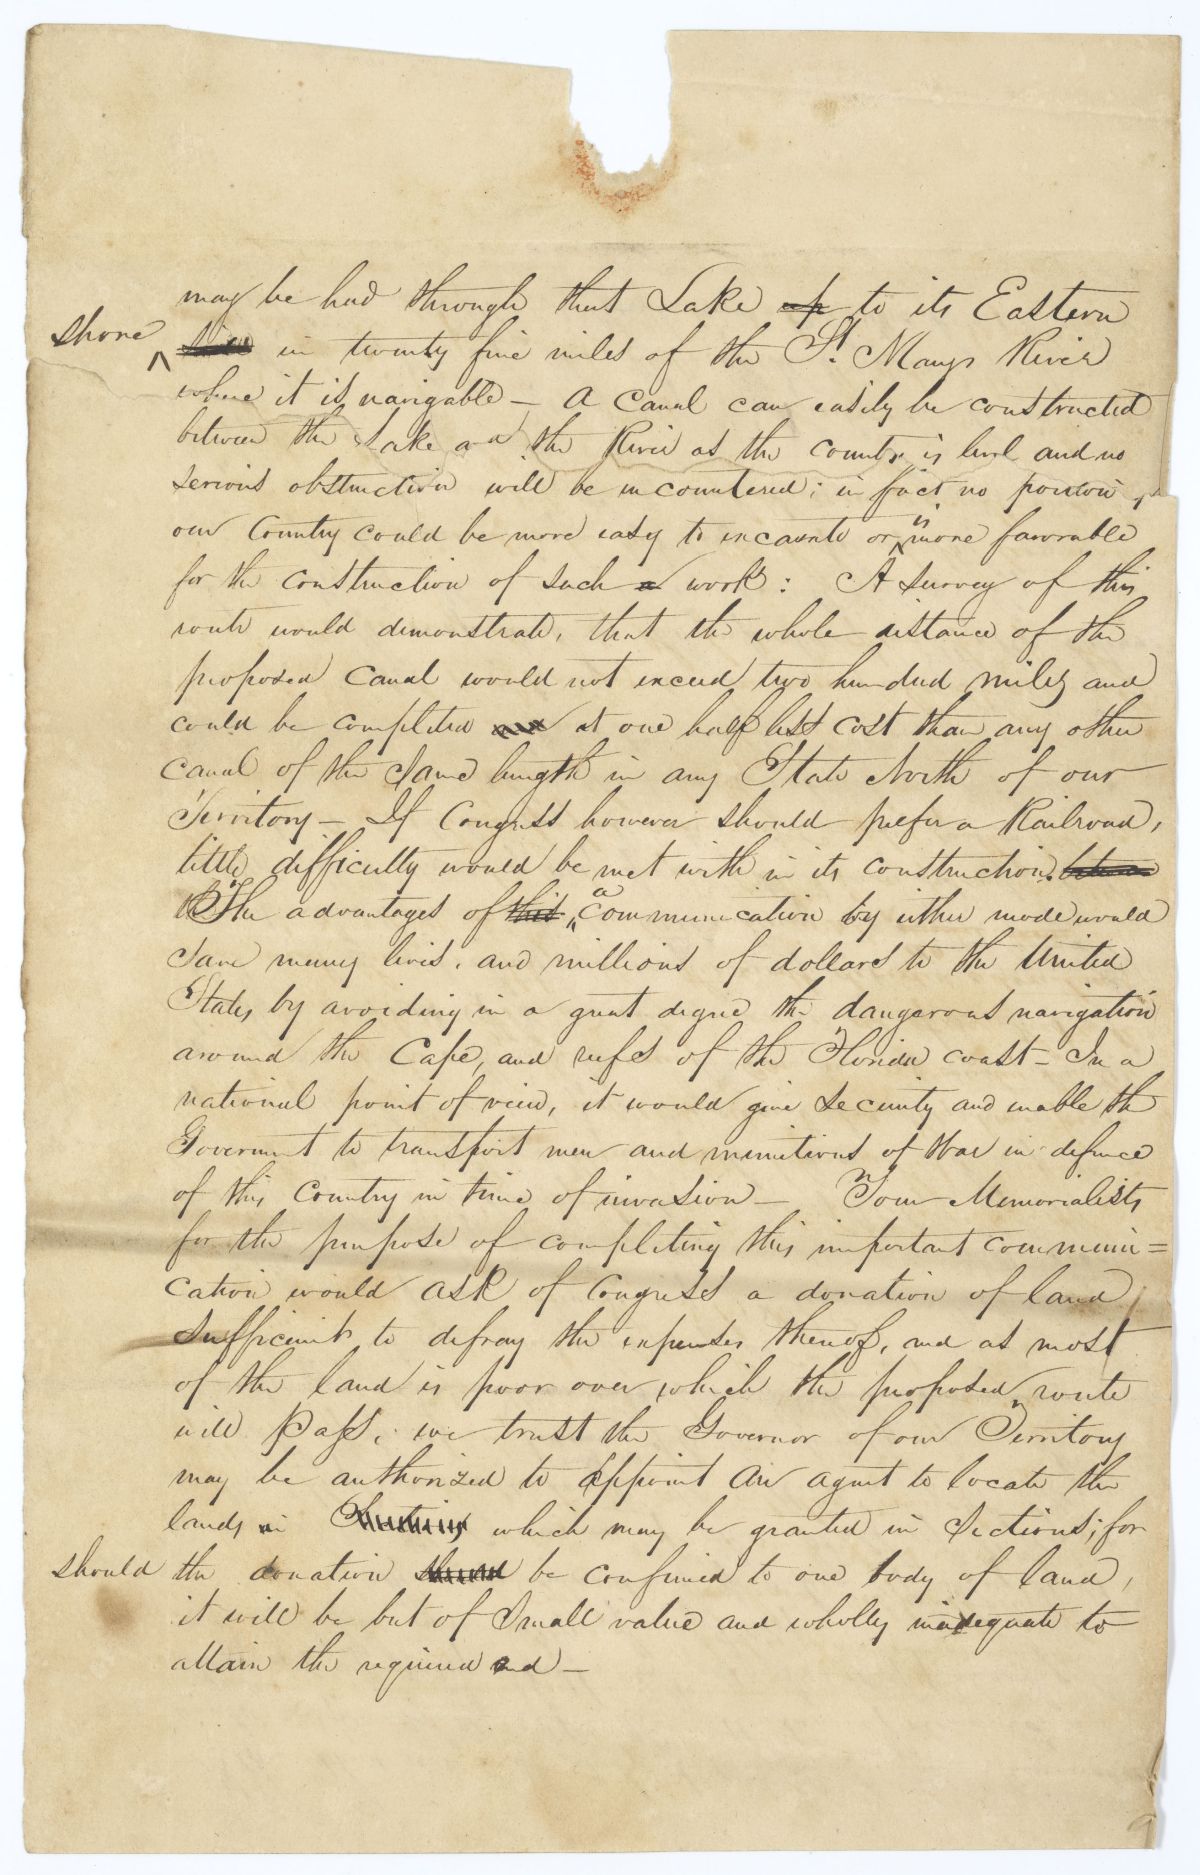 may be had through that Lake up to its Eastern
shore in twenty five miles of the St. Marys River
where it is navigable – A Canal can easily be constructed
between the Lake and the River as the country is level and no
serious obstruction will be incountered; in fact no portion of
our Country could be more easy to excavate or is more favorable
for the construction of such a work: A survey of this
route would demonstrate, that the whole distance of the
proposed Canal would not exceed two hundred miles and
could be completed at one half less cost than any other
canal of the same length in any State North of our
Territory – If Congress however should prefer a Railroad,
little difficulty would be met with in its construction.
The advantages of this a communication by either mode would
save many lives, and millions of dollars to the United
States, by avoiding in a great degree the dangerous navigation
around the Cape, and reefs of the Florida coast – In a
national point of view, it would give Security and enable the
Goverment to transport men and munitions of War in defence
of this Country in time of invasion – Your Memorialists
for the purpose of completing this important communi=
cation would ask of Congress a donation of land
sufficient to defray the expenses thereof, and as most
of the land is poor over which the proposed route
will pass, we trust the Governor of our Territory
may be authorized to appoint an agent to locate the
lands in Sections, which may be granted in Sections; for
should the donation should be confined to one body of land,
it will be but of small value and wholly inadequate to
attain the required end –